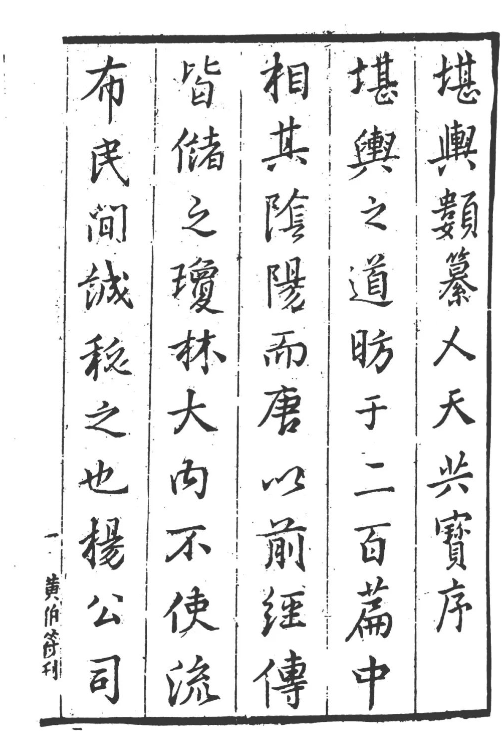 堪輿類纂人天共寳序
堪輿之道昉于二百篇中
相其陰陽而唐以前經傳
皆儲之瓊林大内不使流
布民間誠秘之也楊公司
一
黄伯符刊